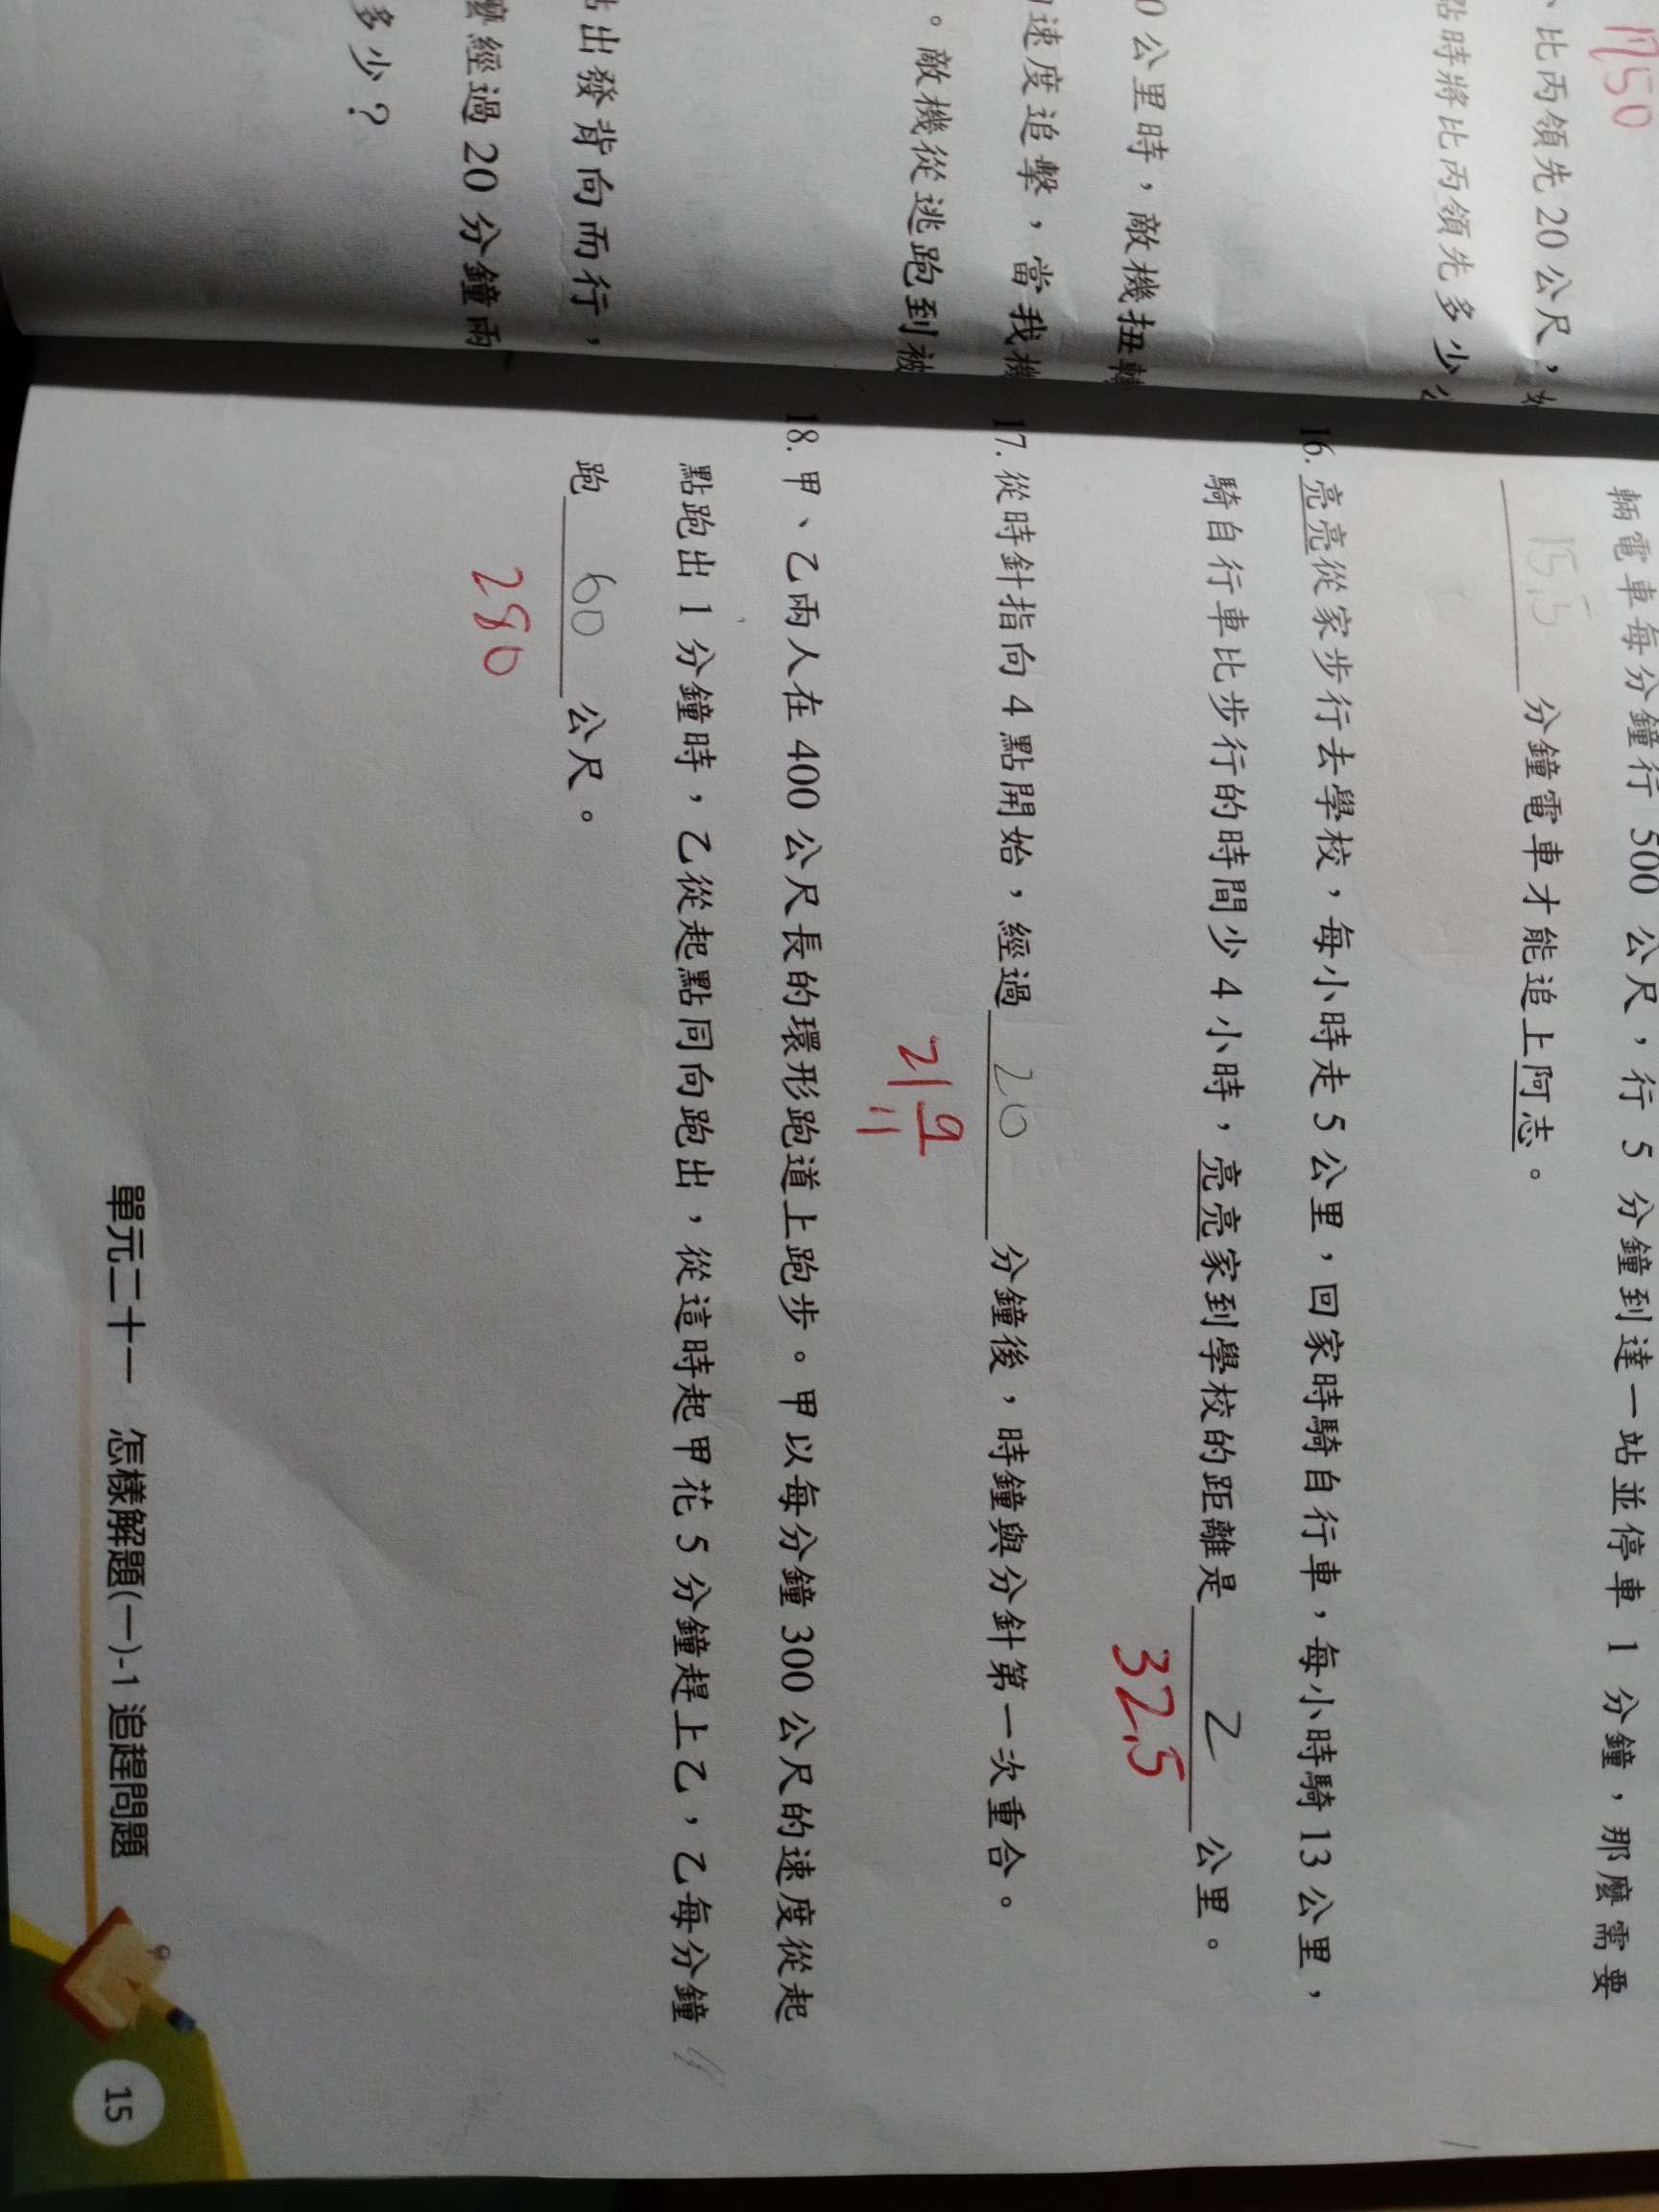 1750
、比丙領先20公尺，
點時將比丙領先多少
0公里時，敵機扭轉
速度追擊，當我機
。敵機從逃跑到被
出發背向而行，
麼經過20分鐘兩
多少？
輛電車每分鐘行500公尺，行5分鐘到達一站並停車1分鐘，那麼需要
15.5 分鐘電車才能追上阿志。
16.亮亮從家步行去學校，每小時走5公里，回家時騎自行車，每小時騎13公里，
騎自行車比步行的時間少4小時，亮亮家到學校的距離是 2 公里。
32.5
17.從時針指向4點開始，經過 20 分鐘後，時鐘與分針第一次重合。
21 9/11
18.甲、乙兩人在400公尺長的環形跑道上跑步。甲以每分鐘300公尺的速度從起
點跑出1分鐘時，乙從起點同向跑出，從這時起甲花5分鐘趕上乙，乙每分鐘
跑 60 公尺。
280
單元二十一 怎樣解題(一)-1 追趕問題
15